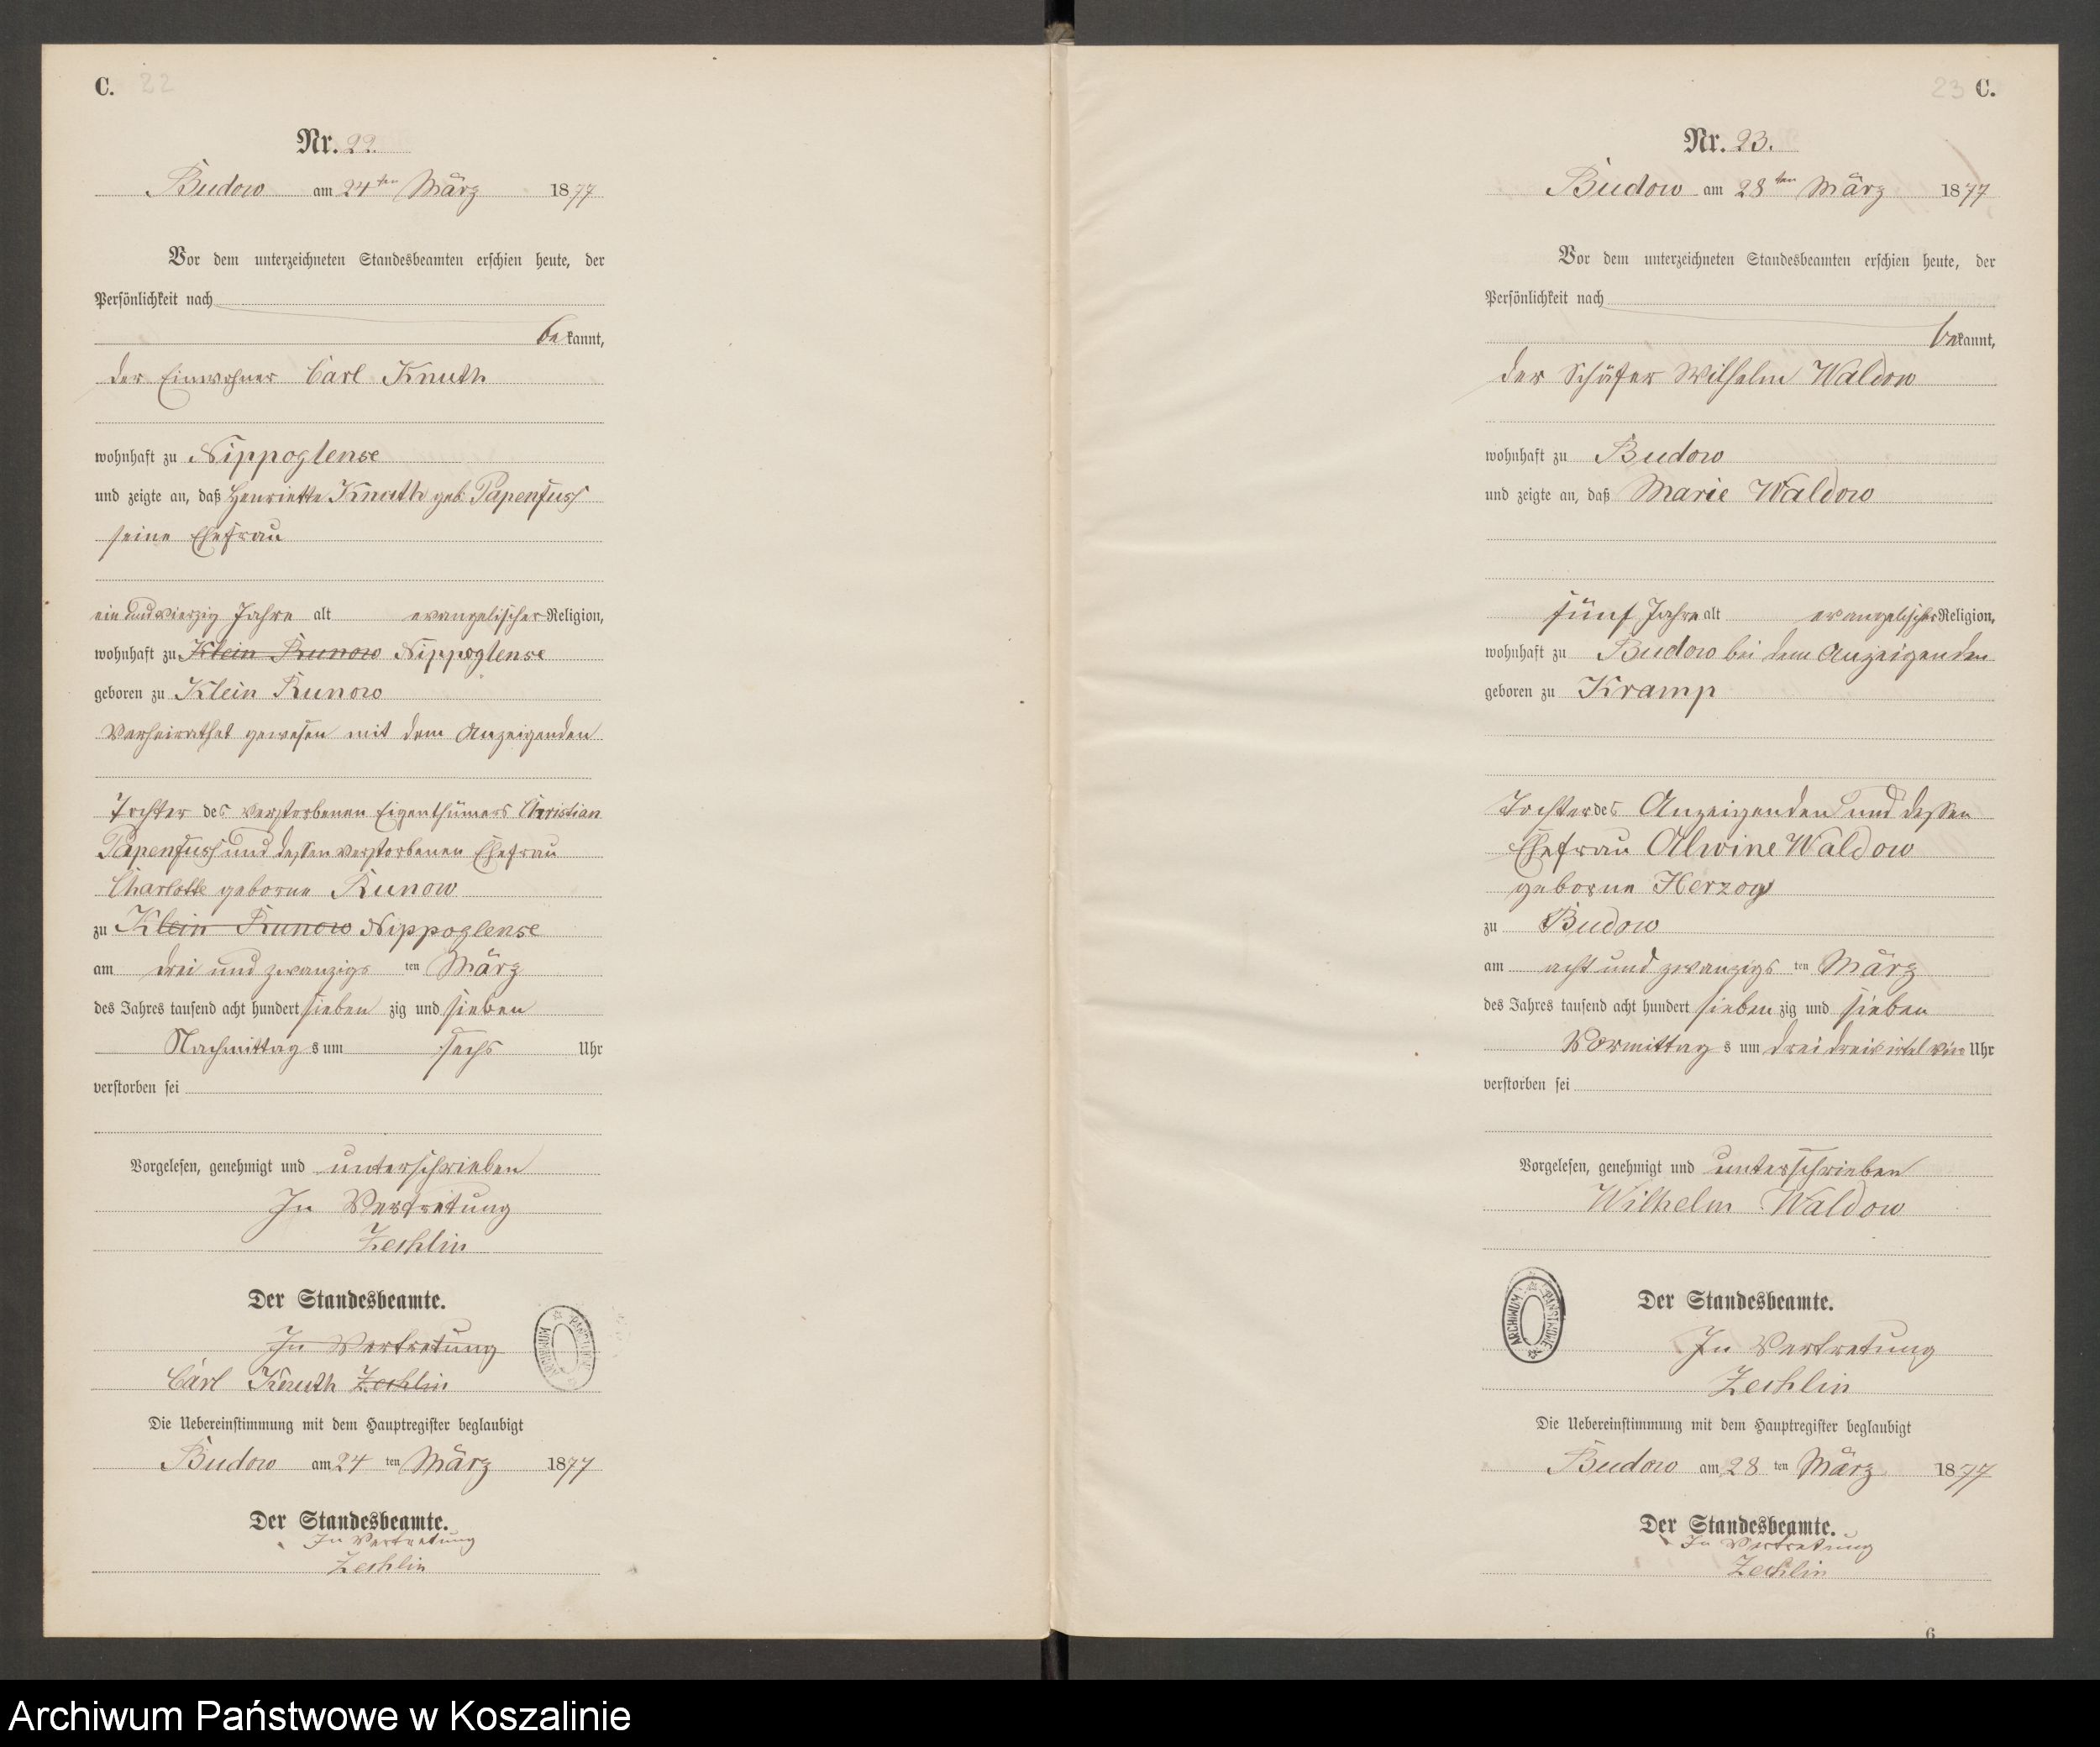 C. 22
Nr. 22.
Budow am 24ten März 1877
Vor dem unterzeichneten Standesbeamten erschien heute, der
Persönlichkeit nach
bekannt,
der Einwohner Carl Knuth
wohnhaft zu Nippoglense
und zeigte an, daß Henriette Knuth geb. Papenfuss
seine Ehefrau
ein und vierzig Jahre alt evangelischer Religion,
wohnhaft zu Klein Runow Nippoglense
geboren zu Klein Runow
Verheirathet gewesen mit dem Anzeigenden
Tochter des verstorbenen Eigenthümers Christian
Papenfuss und dessen verstorbenen Ehefrau
Charlotte geborne Runow
zu Klein Runow Nippoglense
am drei und zwanzigs ten März
des Jahres tausend acht hundert sieben zig und sieben
Nachmittag s um sechs Uhr
verstorben sei
Vorgelesen, genehmigt und unterschrieben
In Vertretung
Zechlin
Der Standesbeamte.
In Vertretung
Carl Knuth Zechlin
ARCHIWUM PAŃSTWOWE
Die Uebereinstimmung mit dem Hauptregister beglaubigt
Budow am 24 ten März 1877
Der Standesbeamte.
In Vertretung
Zechlin
23 C.
Nr. 23.
Budow am 28ten März 1877
Vor dem unterzeichneten Standesbeamten erschien heute, der
Persönlichkeit nach
bekannt,
der Schäfer Wilhelm Waldow
wohnhaft zu Budow
und zeigte an, daß Marie Waldow
fünf Jahre alt evangelischer Religion,
wohnhaft zu Budow bei dem Anzeigenden
geboren zu Kramp
Tochter des Anzeigenden und dessen
Ehefrau Alwine Waldow
geborne Herzog
zu Budow
am acht und zwanzigs ten März
des Jahres tausend acht hundert sieben zig und sieben
Vormittag s um drei dreiviertel vier Uhr
verstorben sei
Vorgelesen, genehmigt und unterschrieben
Wilhelm Waldow
Der Standesbeamte.
ARCHIWUM PAŃSTWOWE
In Vertretung
Zechlin
Die Uebereinstimmung mit dem Hauptregister beglaubigt
Budow am 28 ten März 1877
Der Standesbeamte.
In Vertretung
Zechlin
6
Archiwum Państwowe w Koszalinie